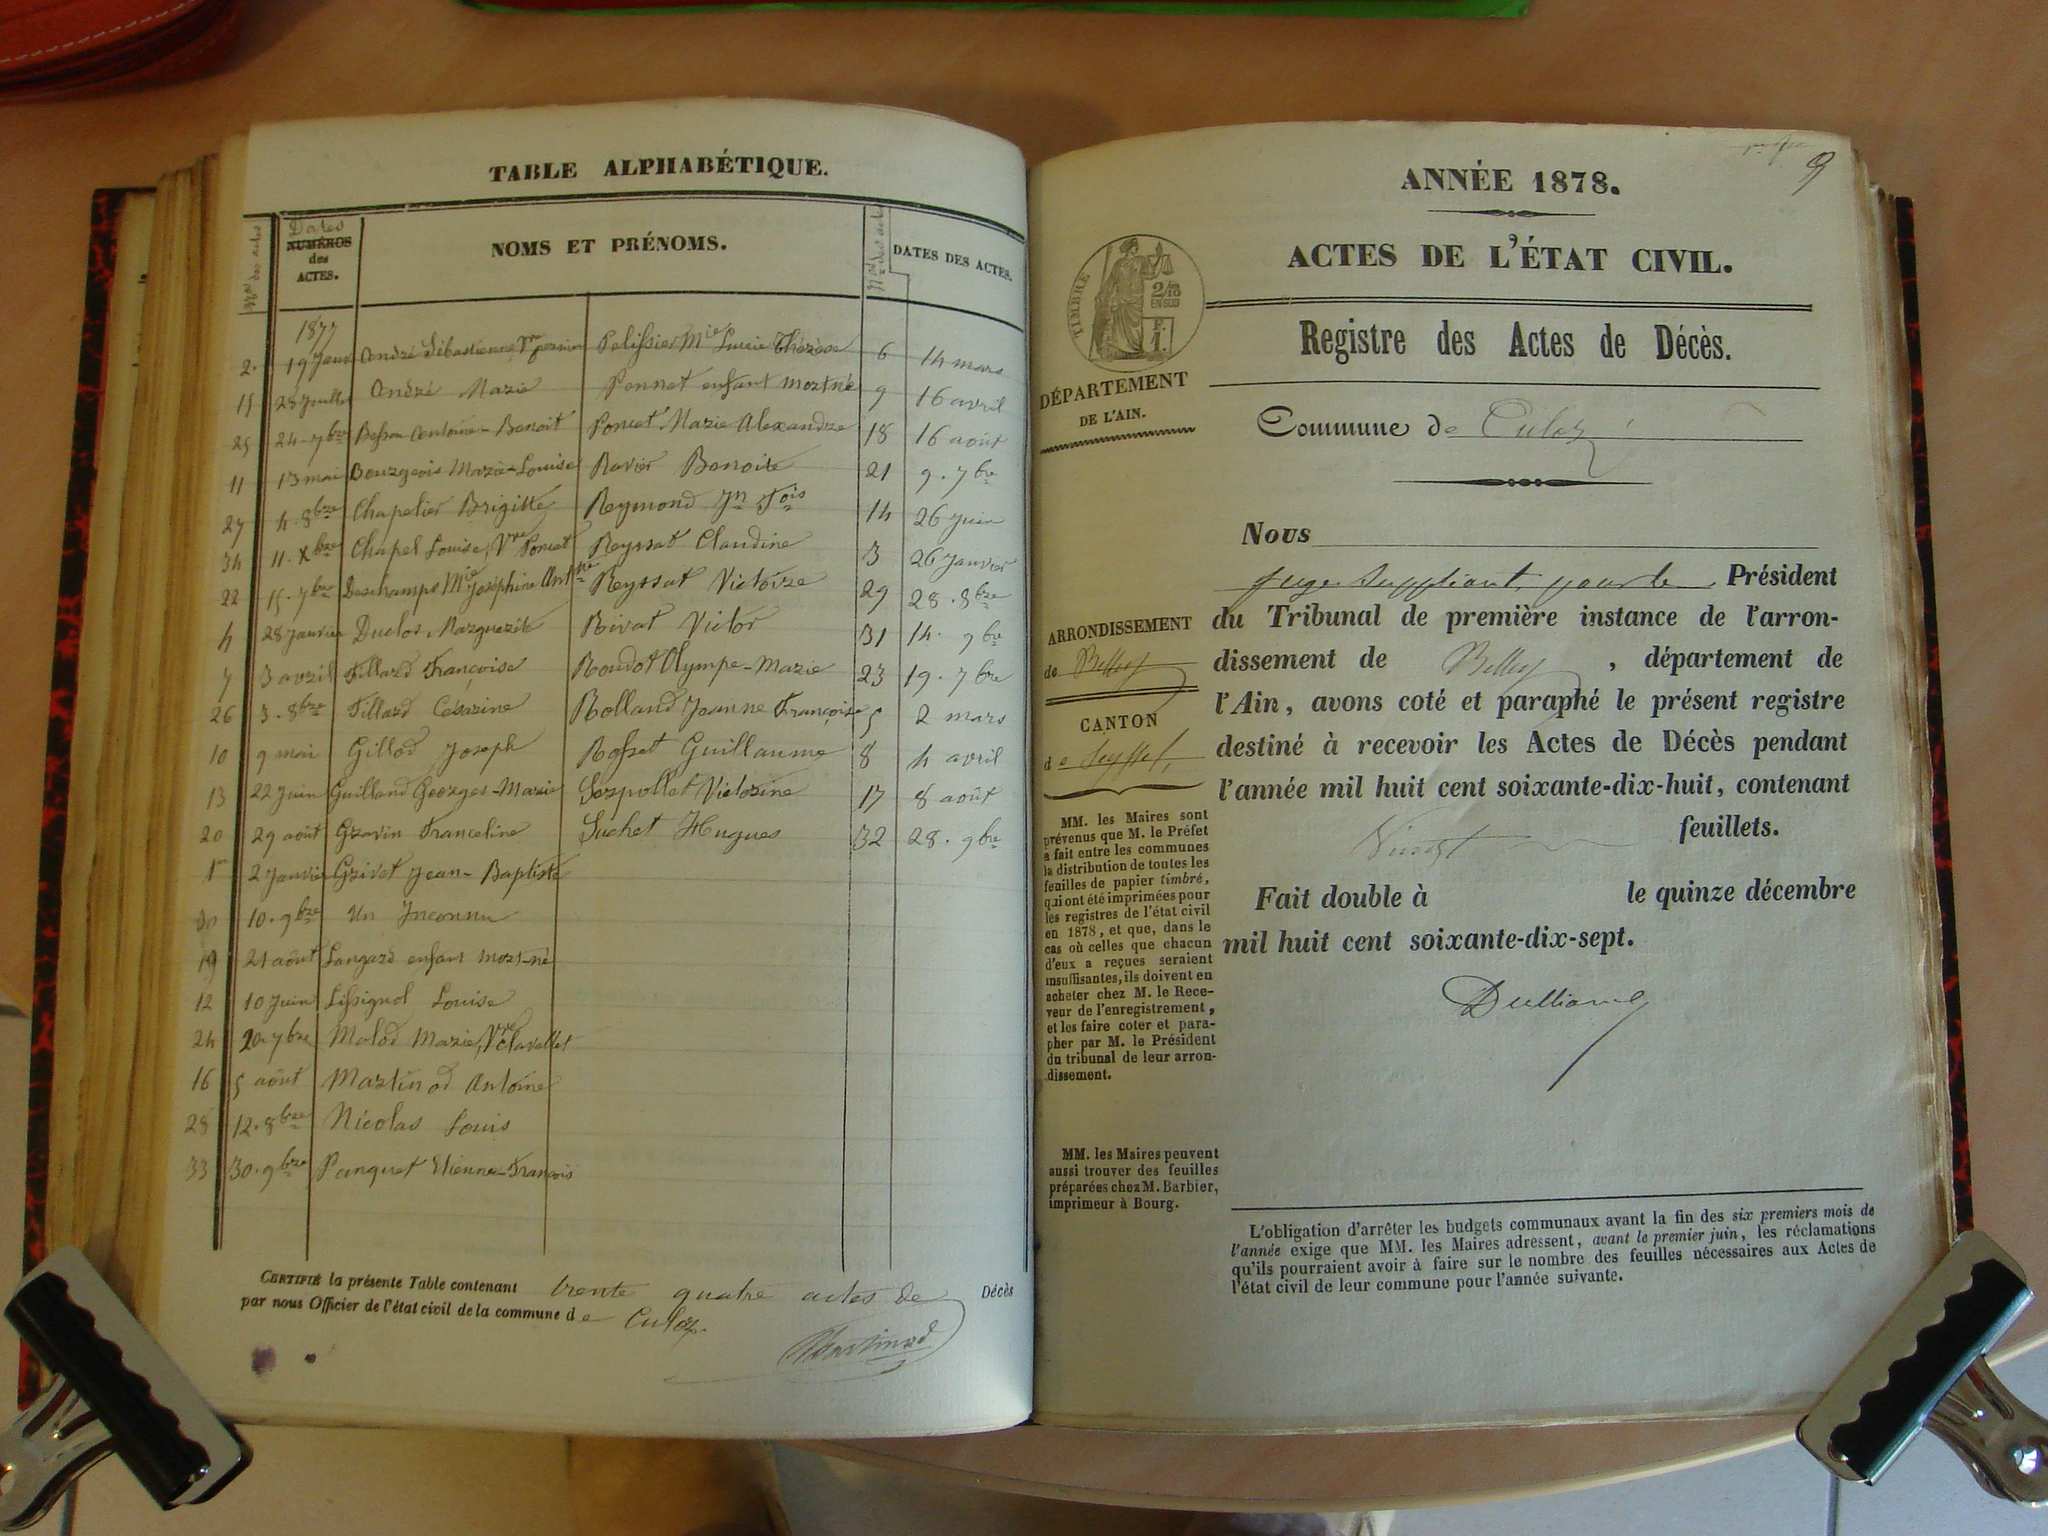 TABLE ALPHABÉTIQUE.
Nos des actes
Dates
NUMÉROS
des
ACTES.
NOMS ET PRÉNOMS.
Nos des actes
DATES DES ACTES.
1877
2. 19 Janv André Sébastienne Vve Pelissier Mie Lucie Thérèse 6 14 mars
15 28 Juillet André Marie Ponnet enfant mort né 9 16 avril
25 24 7bre Besson Antoine-Benoit Poncet Marie Alexandre 18 16 août
11 13 mai Bourgeois Marie-Louise Ravier Benoite 21 9. 7bre
27 4. 8bre Chapelier Brigitte Reymond Jn Fois 14 26 Juin
34 11. Xbre Chapel Louise, Vve Poncet Reyssat Claudine 3 26 Janvier
22 15. 7bre Deschamps Mie Joséphine Antne Reyssat Victoire 29 28. 8bre
4 28 Janvier Duclos Marguerite Rivat Victor 31 14. 9bre
7 3 avril Fillard Françoise Roudot Olympe-Marie 23 19. 7bre
26 3. 8bre Fillard Césarine Rolland Jeanne Françoise 5 2 mars
10 9 mai Gillod Joseph Rosset Guillaume 8 4 avril
13 22 Juin Guilland Georges-Marie Serpollet Victorine 17 8 août
20 29 août Gravin Franceline Suchet Hugues 32 28. 9bre
1er 2 Janvier Grivet Jean-Baptiste
30 10. 9bre Un Inconnu
19 21 août Langard enfant mort-né
12 10 Juin Lissignol Louise
24 20 7bre Molod Marie, Vve Clavellet
16 5 août Martinod Antoine
28 12. 8bre Nicolas Louis
33 30. 9bre Panquet Etienne-François
CERTIFIÉ la présente Table contenant trente quatre actes de Décès
par nous Officier de l'état civil de la commune de Culoz.
Martinod
9
ANNÉE 1878.
ACTES DE L'ÉTAT CIVIL.
TIMBRE
2/10
EN SUS
F.
1.
Registre des Actes de Décès.
DÉPARTEMENT
DE L'AIN.
Commune de Culoz
Nous
Juge Suppléant, pour le Président
du Tribunal de première instance de l'arron-
dissement de Belley, département de
l'Ain, avons coté et paraphé le présent registre
destiné à recevoir les Actes de Décès pendant
l'année mil huit cent soixante-dix-huit, contenant
Vingt feuillets.
Fait double à le quinze décembre
mil huit cent soixante-dix-sept.
Dulliand
ARRONDISSEMENT
de Belley
CANTON
de Seyssel
MM. les Maires sont
prévenus que M. le Préfet
a fait entre les communes
la distribution de toutes les
feuilles de papier timbré,
qui ont été imprimées pour
les registres de l'état civil
en 1878, et que, dans le
cas où celles que chacun
d'eux a reçues seraient
insuffisantes, ils doivent en
acheter chez M. le Rece-
veur de l'enregistrement,
et les faire coter et para-
pher par M. le Président
du tribunal de leur arron-
dissement.
MM. les Maires peuvent
aussi trouver des feuilles
préparées chez M. Barbier,
imprimeur à Bourg.
L'obligation d'arrêter les budgets communaux avant la fin des six premiers mois de
l'année exige que MM. les Maires adressent, avant le premier juin, les réclamations
qu'ils pourraient avoir à faire sur le nombre des feuilles nécessaires aux Actes de
l'état civil de leur commune pour l'année suivante.